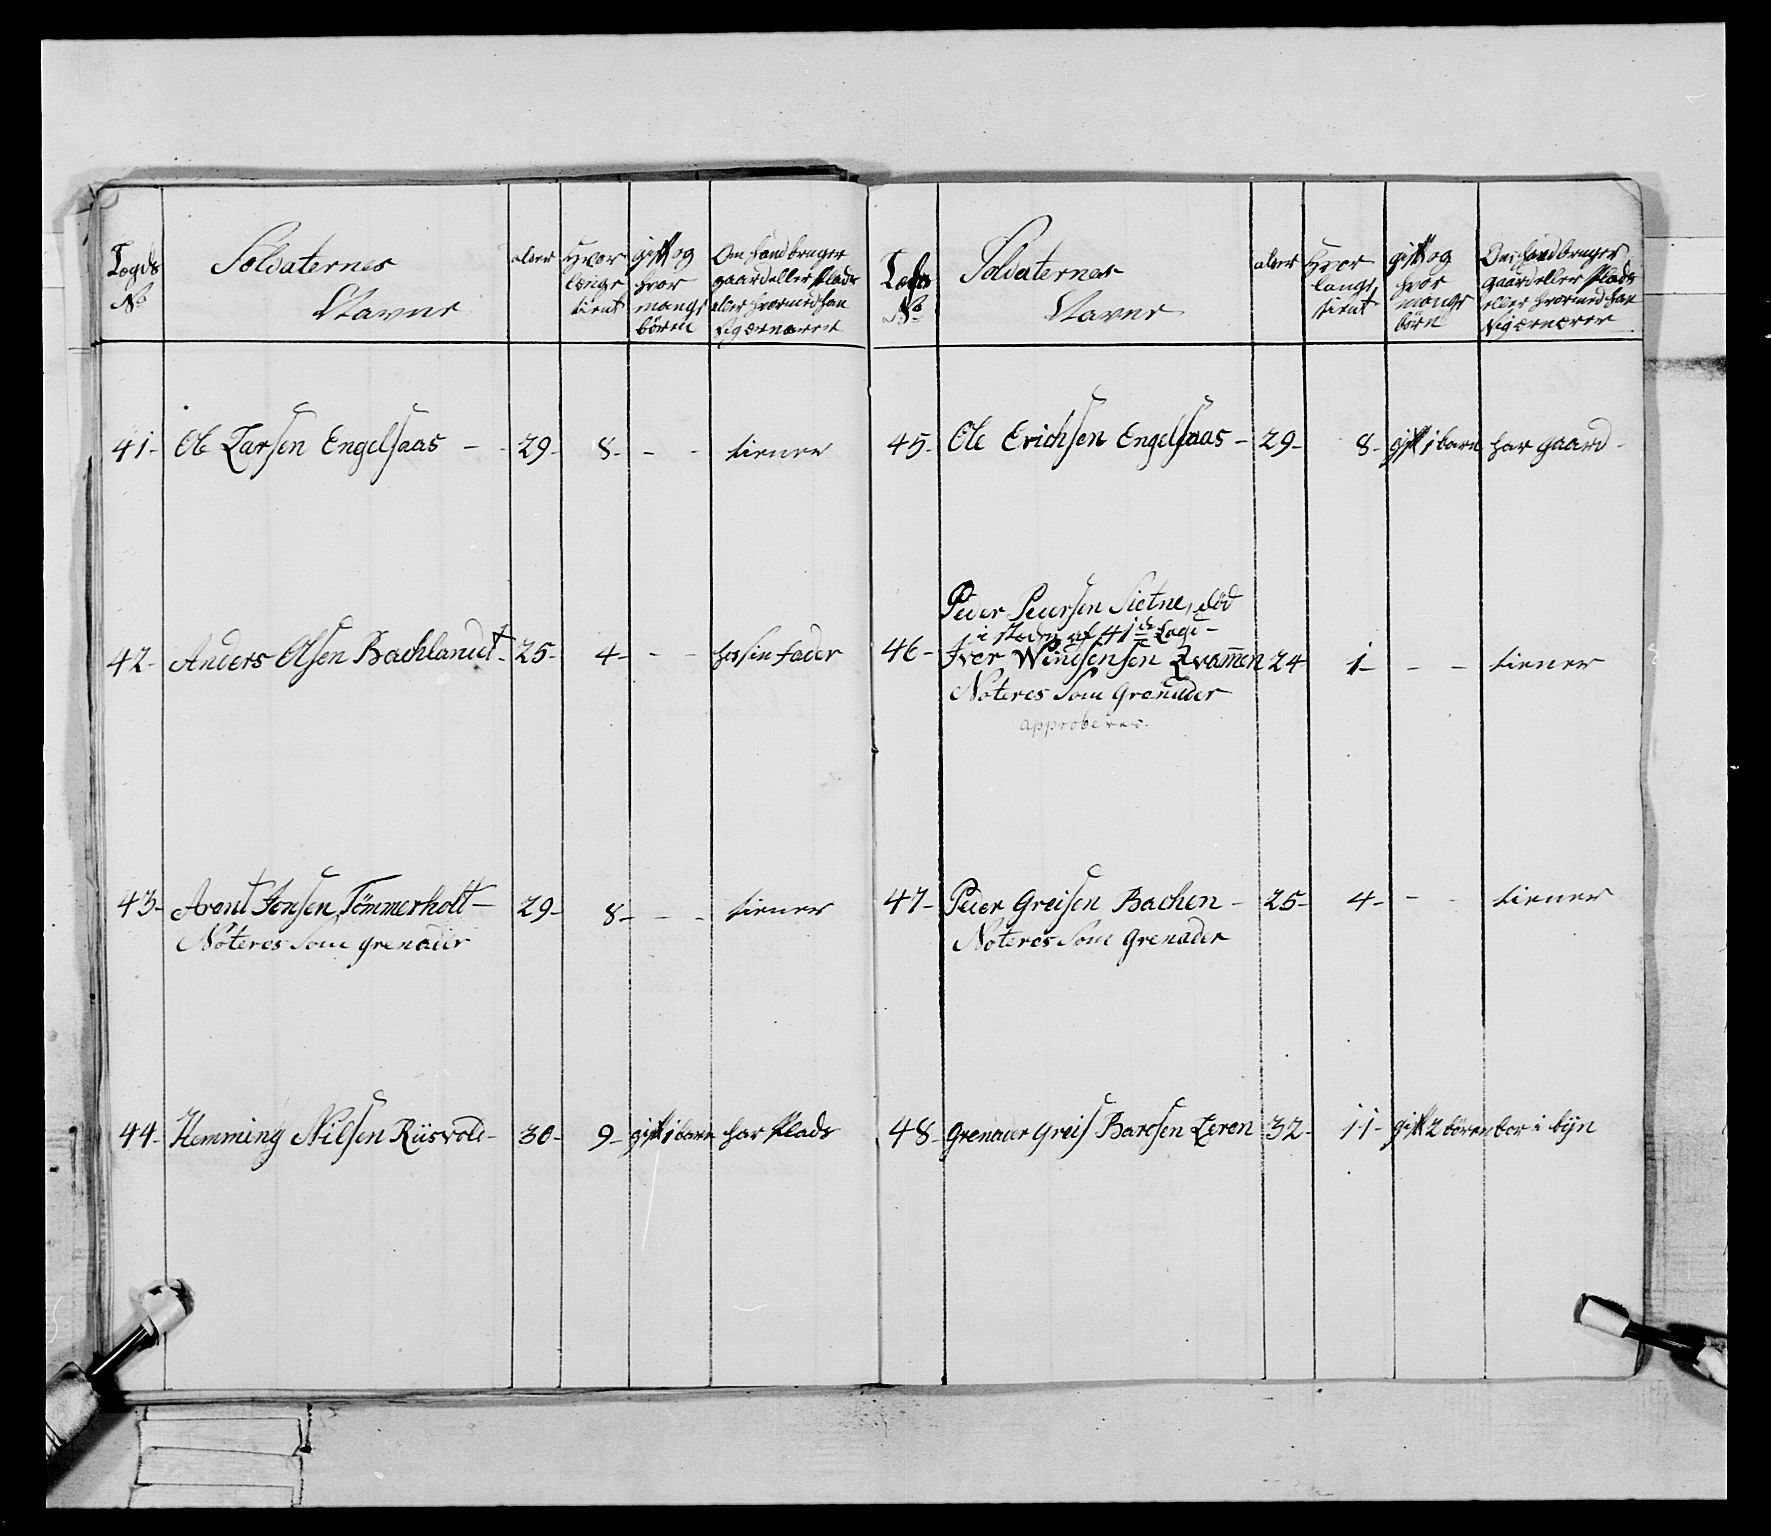 Legds Soldaternes alder Hvor gift og Om hand bruger
No Navne længe hvor gaard eller Plads
tient mange eller hvormed han
börn sig ernærer
41- Ole Larsen Engelsaas - - 29- 8- - - tiener
42- Anders Olsen Bachlandet- 25- 4- - - hos sin Fader
43- Arent Jonsen Tömmerholt- 29- 8- - - tiener
Noteres Som grenader
44- Hemming Nilsen Riisvold- 30- 9- gift 1 barn har Plads
Legds Soldaternes alder Hvor gift og Om hand bruger
No Navne længe hvor gaard eller Plads
tient mange eller hvormed han
börn sig ernærer
45- Ole Erichsen Engelsaas- 29- 8- gift 1 barn har gaard-
Peder Pedersen Sletne, död
i steden af 41de Lægd-
46- Iver Qvammen 24 1- - - tiener
Noteres Som Grenader
approberes.
47- Peder Greisen Bachen- 25- 4- - - tiener
Noteres Som Grenader
48- Grenader Greis Bardsen Leren 32- 11- gift 2 börn bor i bÿn